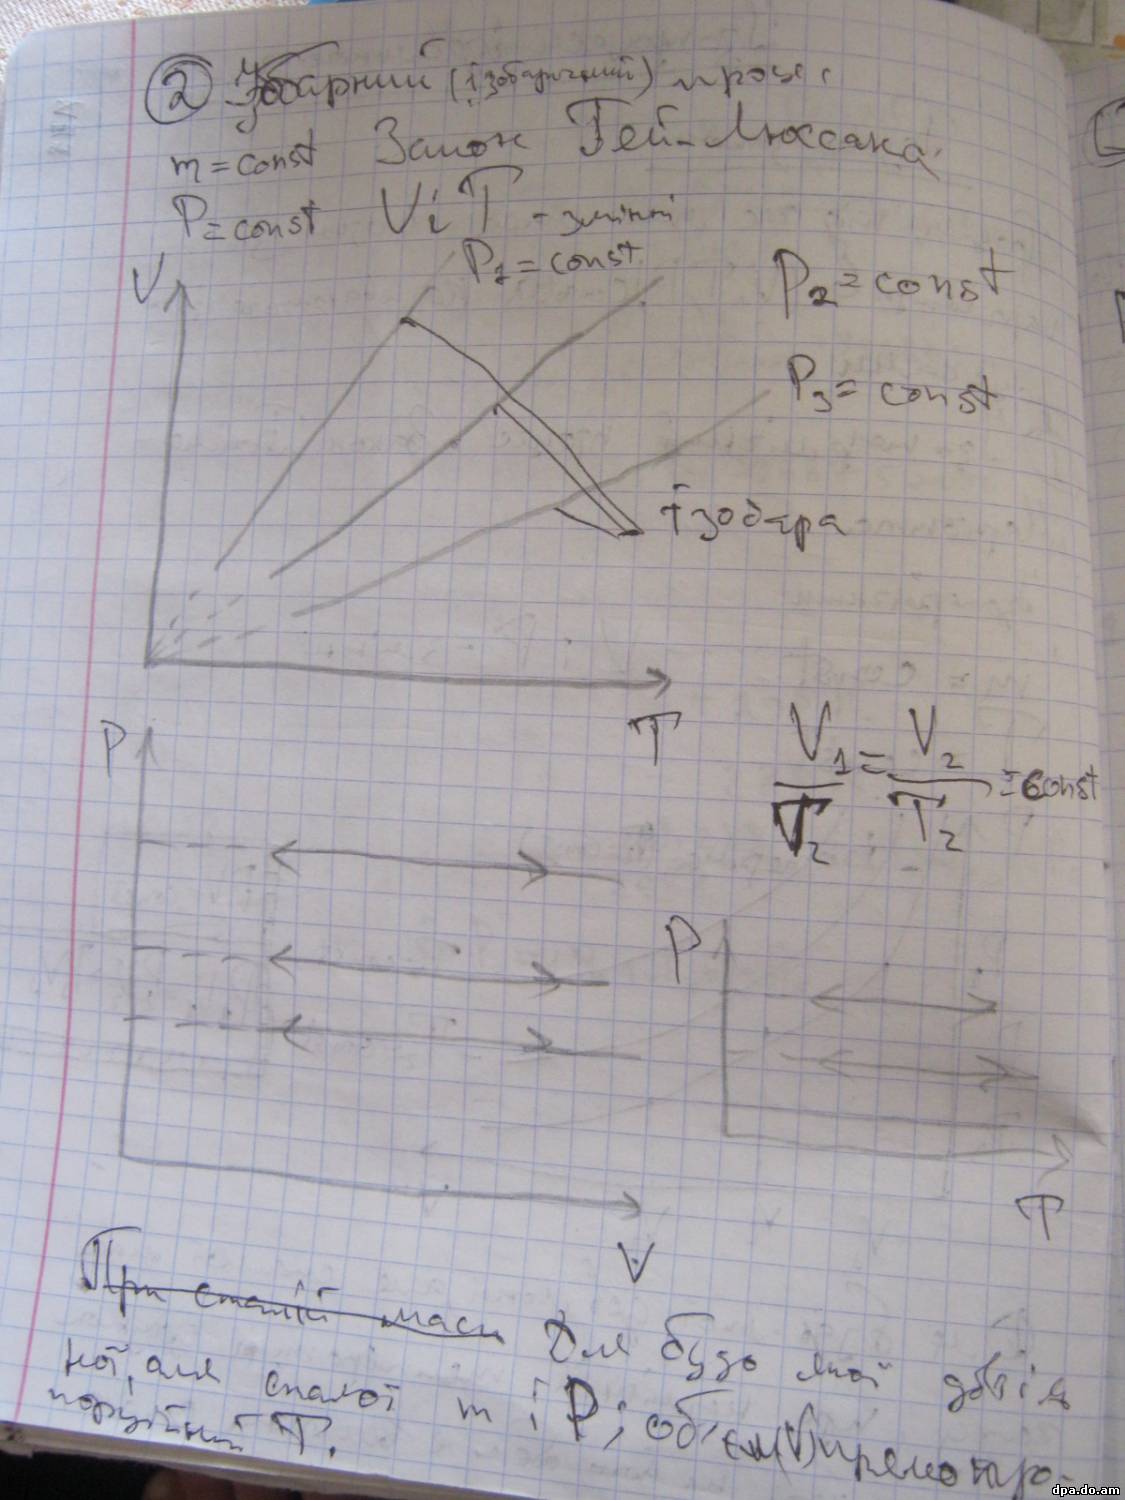 ② Ізобарний (ізобаричний) процес
m = const Закон Гей-Люссака
P = const V і T - змінні
V
P₁ = const
P₂ = const
P₃ = const
Ізобара
T
V₁/T₂ = V₂/T₂ = const
P
P
T
V
При сталій маси Для будь якої довіль
ної, але сталої m і P; об'єм (V) прямо про-
порційний T.
dpa.do.am